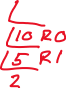 10 R0
5 R1
2